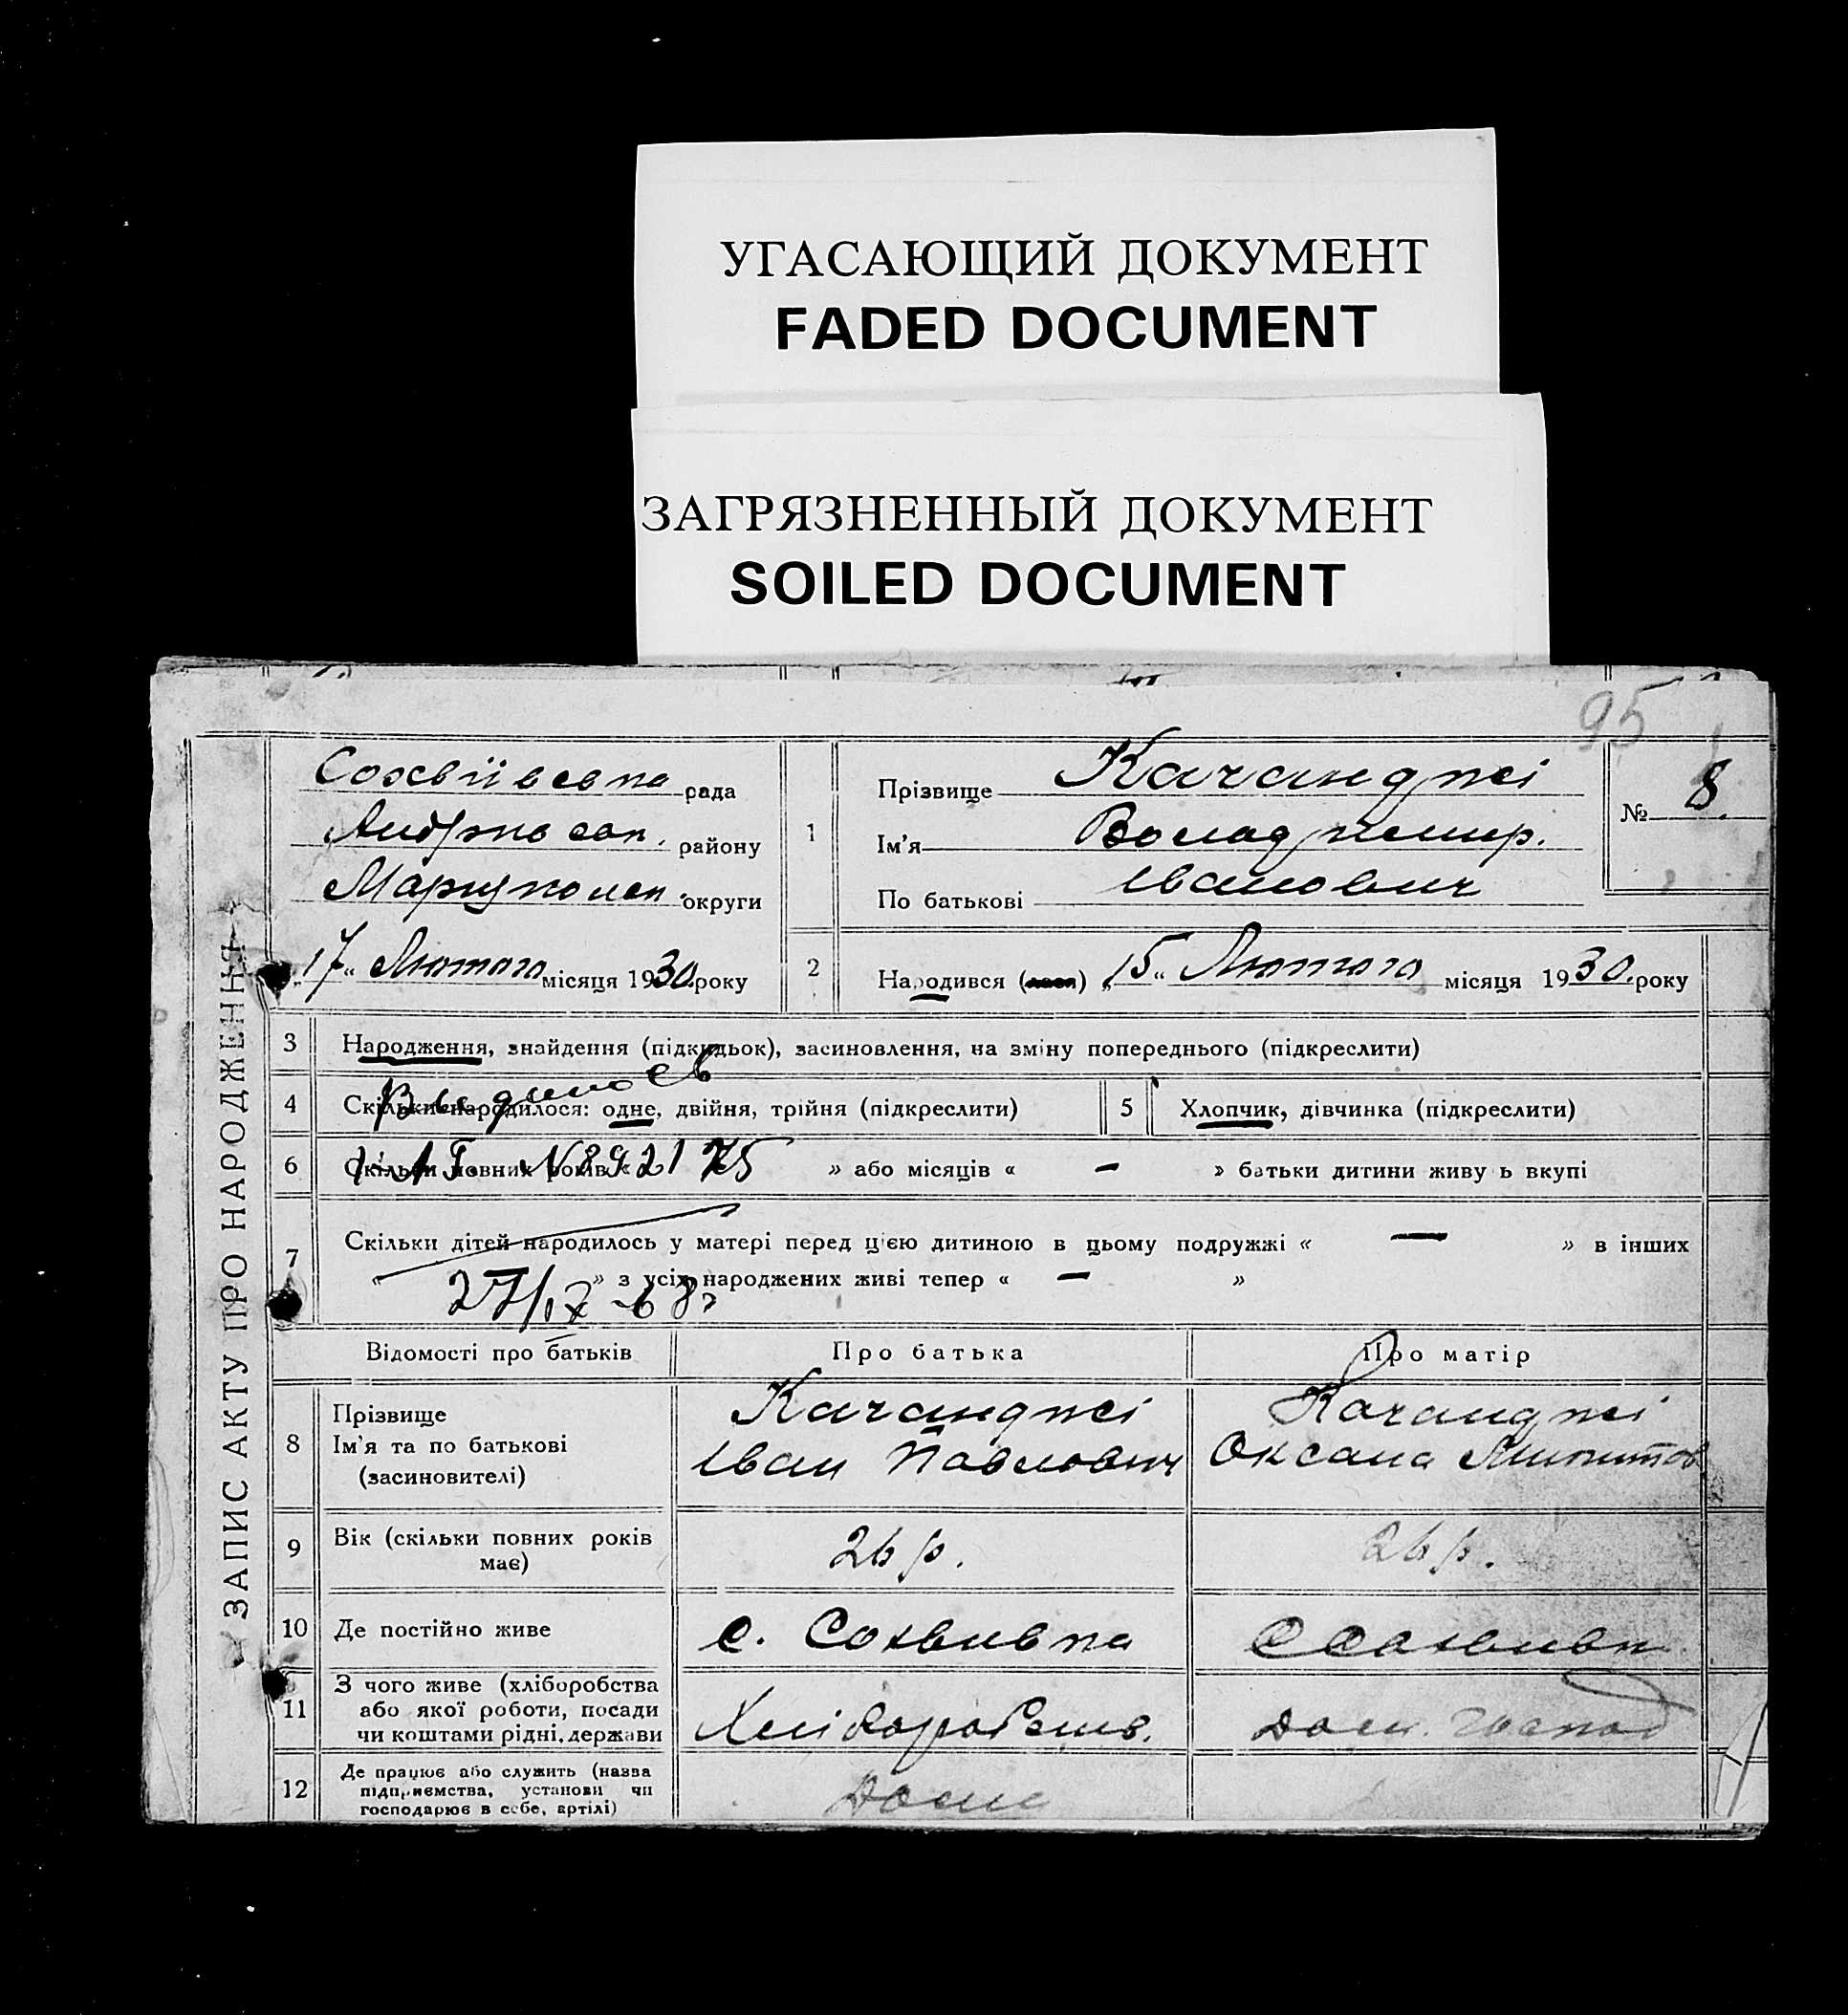 УГАСАЮЩИЙ ДОКУМЕНТ
FADED DOCUMENT
ЗАГРЯЗНЕННЫЙ ДОКУМЕНТ
SOILED DOCUMENT
95
ЗАПИС АКТУ ПРО НАРОДЖЕННЯ
рада
району
Маріупол. округи
„17“ Лютого місяця 1930 року
1
Прізвище Качанджі
Ім'я Володимир.
По батькові Іванович
№ 8.
2
Народився (лася) „15“ Лютого місяця 1930. року
3 Народження, знайдення (підкидьок), засиновлення, на зміну попереднього (підкреслити)
Выдано св
4 Скільки народилося: одне, двійня, трійня (підкреслити)
5 Хлопчик, дівчинка (підкреслити)
6 Скільки повних років « » або місяців « — » батьки дитини живуть вкупі
892175
7 Скільки дітей народилось у матері перед цією дитиною в цьому подружжі « — » в інших
« » з усіх народжених живі тепер « — »
Відомості про батьків
Про батька
Про матір
8 Прізвище
Ім'я та по батькові
(засиновителі)
Качанджі
Іван Павлович
Качанджі
Оксана
9 Вік (скільки повних років має)
26 р.
26 р.
10 Де постійно живе
с.
11 З чого живе (хліборобства
або якої роботи, посади
чи коштами рідні, держави
Хліборобств.
Дом. господ
12 Де працює або служить (назва
підприємства, установи чи
господарює в себе, артілі)
Дома